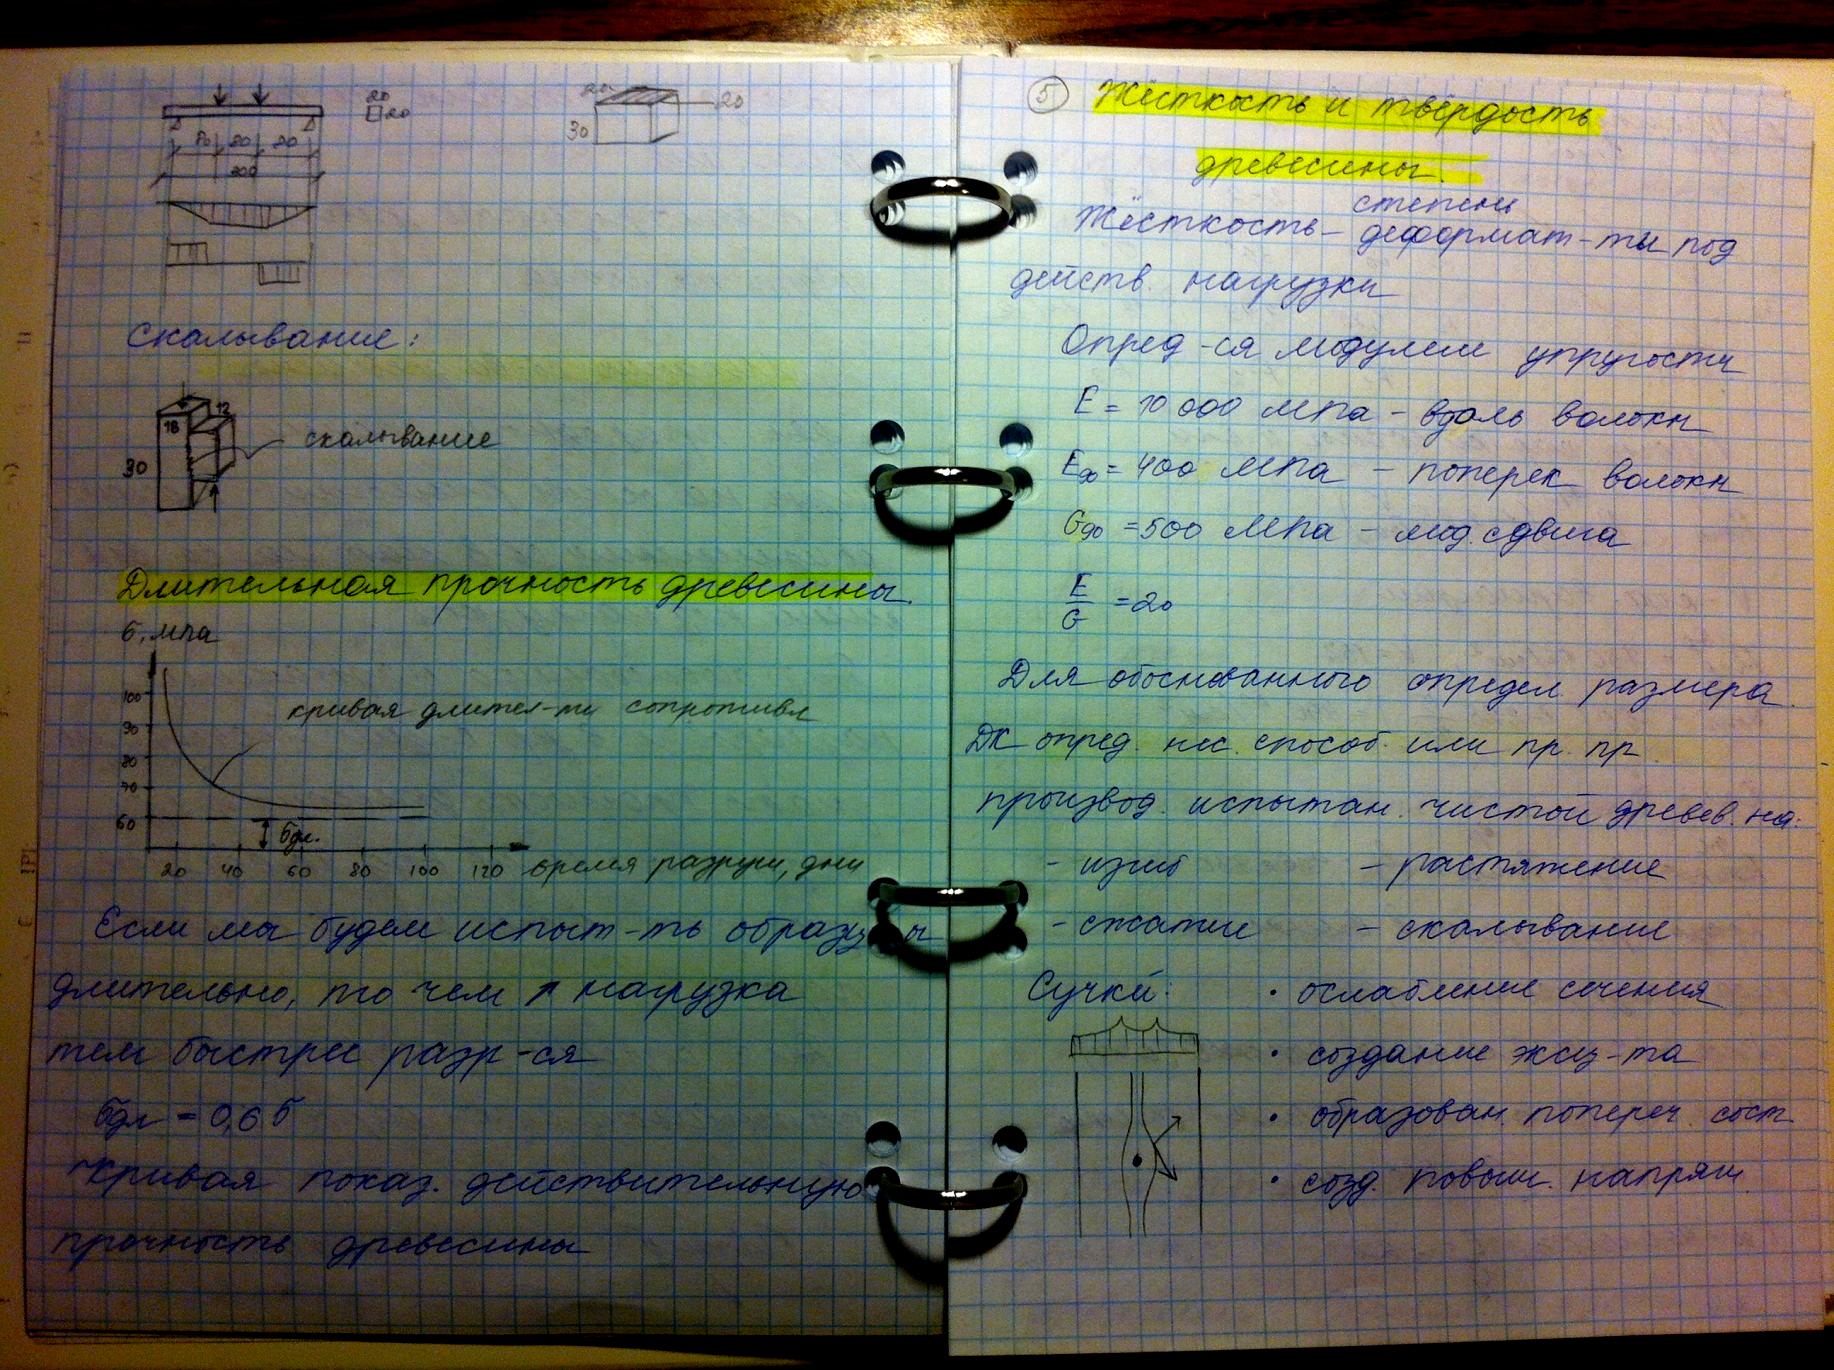 20
20
20
20
30
20 20
300
Скалывание:
12
18
30
скалывание
Длительная прочность древесины.
б, мпа
100
90
80
70
60
кривая длител-ти сопротивл
бдл.
20 40 60 80 100 120 время разруш, дни
Если мы будем испыт-ть образцы
длительно, то чем ↑ нагрузка
тем быстрее разр-ся
бдл = 0,6 б
Кривая показ. действительную
прочность древесины
5 Жёсткость и твёрдость
древесины.
степень
Жёсткость – деформат-ты под
действ. нагрузки
Опред-ся модулем упругости
E = 10 000 МПа – вдоль волокн
E90 = 400 МПа – поперек волокн
G90 = 500 МПа – мод. сдвига
E/G = 20
Для обоснованного определ. размера
ДК опред. нес. способ. или пр. пр.
производ. испытан. чистой древес. на:
- изгиб – растяжение
- сжатие – скалывание
Сучки: • ослабление сечения
• создание эксц-та
• образован. попереч. сост.
• созд. повыш. напряж.